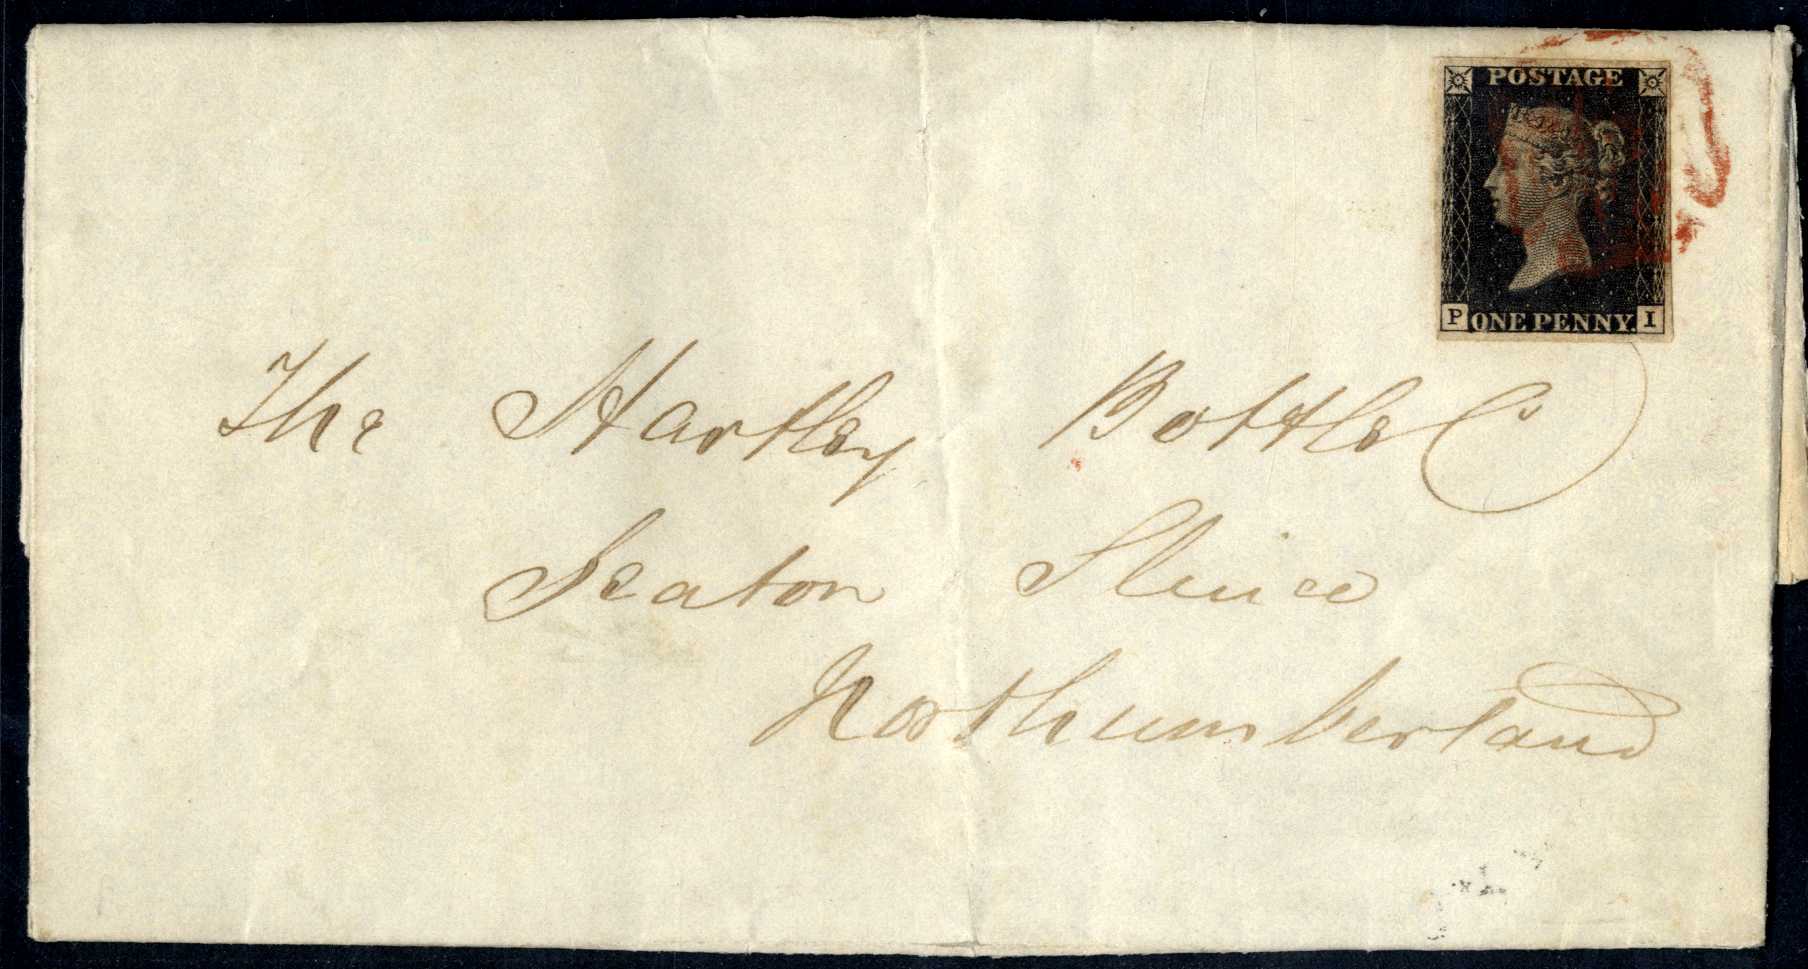 POSTAGE
P ONE PENNY. I
The Hartley Bottle Co
Seaton Sluice
Northumberland